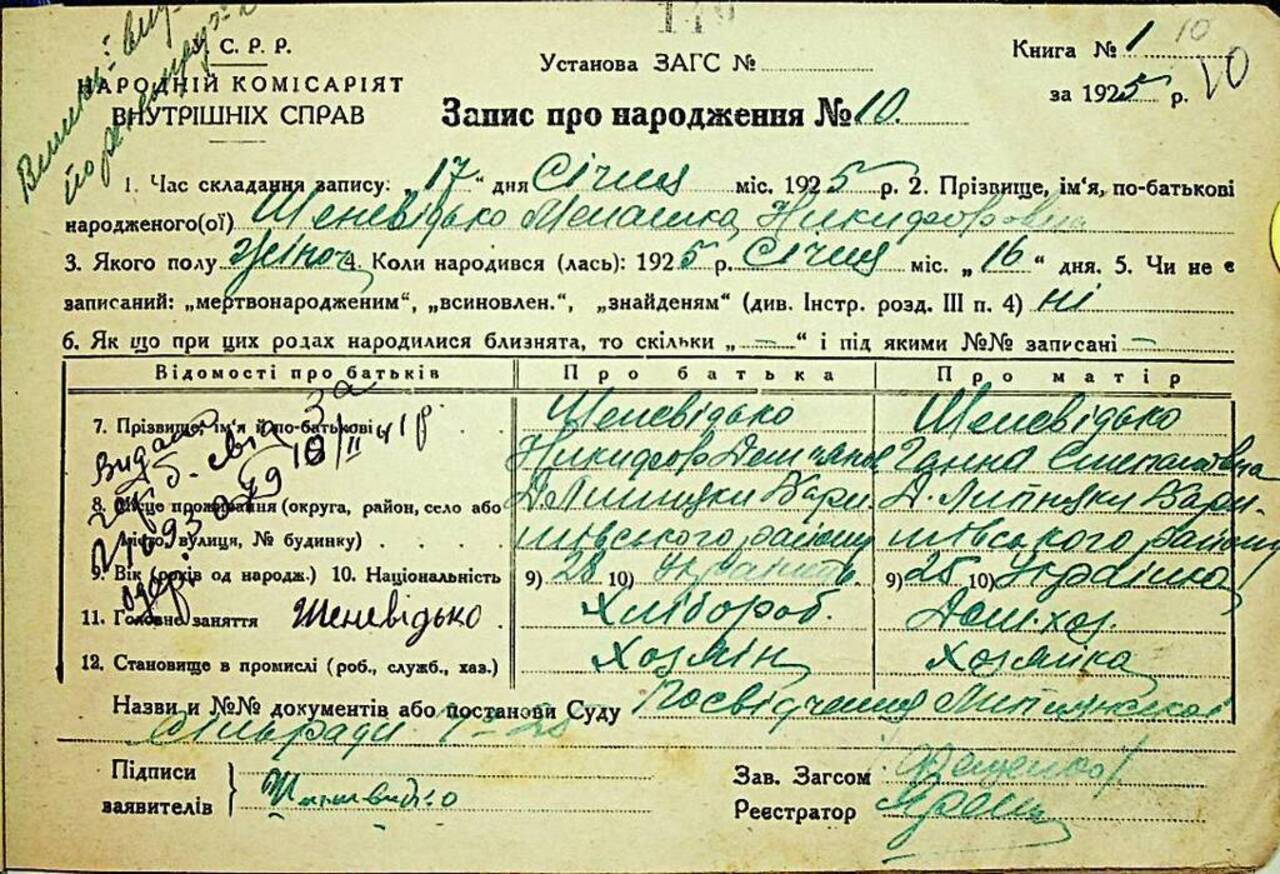 С. Р. Р.
НАРОДНІЙ КОМІСАРІЯТ
ВНУТРІШНІХ СПРАВ
Установа ЗАГС №
Книга № 1 10
за 1925 р. 10
Запис про народження № 10.
1. Час складання запису: „17“ дня Січня міс. 1925 р. 2. Прізвище, ім'я, по-батькові
народженого(ої) Шеневідько Никифоровна
3. Якого полу жіноч 4. Коли народився (лась): 1925 р. Січня міс. „16“ дня. 5. Чи не є
записаний: „мертвонародженим“, „всиновлен.“, „знайденям“ (див. Інстр. розд. III п. 4) ні
6. Як що при цих родах народилися близнята, то скільки „ — “ і під якими №№ записані —
Відомості про батьків Про батька Про матір
7. Прізвище, ім'я й по-батькові Шеневідько Шеневідько
Никифор Ганна Степановна
8. Місце проживання (округа, район, село або Д. Липняки Бари- Д. Липняки Бари-
місто, вулиця, № будинку) шівського району шівського району
9. Вік (років од народж.) 10. Національність 9) 28 10) Українець 9) 25 10) Українка
11. Головне заняття Шеневідько Хлібороб. Дом. хоз.
12. Становище в промислі (роб., служб., хаз.) Хозяїн Хозяйка
Назви и №№ документів або постанови Суду Посвідчення Липнянської
Сільради
Підписи
заявителів
Зав. Загсом
Реєстратор